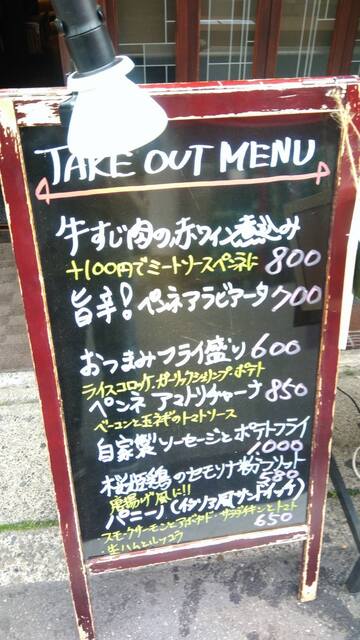 TAKE OUT MENU
牛すじ肉の赤ワイン煮込み
+100円でミートソースペンネに 800
旨辛! ペンネアラビアータ 700
おつまみフライ盛り 600
ライスコロッケ、ガーリックシュリンプ・ポテト
ペンネ アマトリチャーナ 850
ベーコンと玉ネギのトマトソース
自家製ソーセージとポテトフライ
1000
桜姫鶏のセモリナ粉フリット
唐揚げ風に!! 580
パニーノ(イタリア風サンドイッチ)
スモークサーモンとアボカド・サラダチキンとトマト
生ハムとルッコラ 650